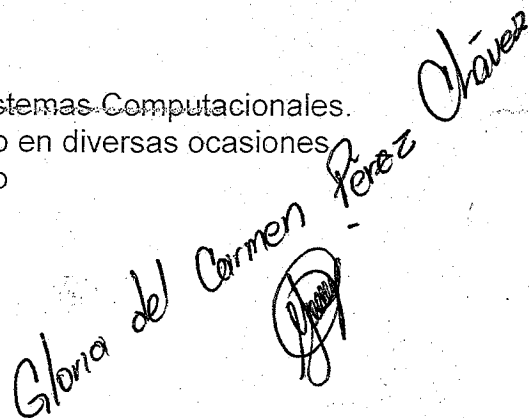 stemas Computacionales.
o en diversas ocasiones
o
Gloria del Carmen Pérez Chávez